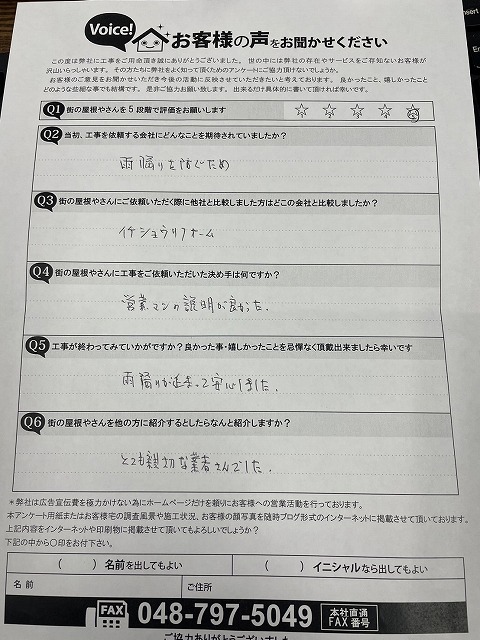 Voice!
お客様の声をお聞かせください
この度は弊社に工事をご用命頂き誠にありがとうございました。 世の中には弊社の存在やサービスをご存知ないお客様が
沢山いらっしゃいます。 その方たちに弊社をよく知って頂くためのアンケートにご協力頂けないでしょうか。
お客様のご意見をお聞かせいただき今後の活動に反映させていただきたいと考えております。 良かったこと、嬉しかったこと
どのような些細な事でも結構です。 是非ご協力お願い致します。 出来るだけ具体的に書いて頂ければ幸いです。
Q1 街の屋根やさんを5段階で評価をお願いします
Q2 当初、工事を依頼する会社にどんなことを期待されていましたか?
雨漏りを防ぐため
Q3 街の屋根やさんにご依頼いただく際に他社と比較しました方はどこの会社と比較しましたか?
イチジョウリフォーム
Q4 街の屋根やさんに工事をご依頼いただいた決め手は何ですか?
営業マンの説明が良かった。
Q5 工事が終わってみていかがですか?良かった事・嬉しかったことを忌憚なく頂戴出来ましたら幸いです
雨漏りが止まって安心しました。
Q6 街の屋根やさんを他の方に紹介するとしたらなんと紹介しますか?
とても親切な業者さんでした。
*弊社は広告宣伝費を極力かけない為にホームページだけを頼りにお客様への営業活動を行っております。
本アンケート用紙またはお客様宅の調査風景や施工状況、お客様の顔写真を随時ブログ形式のインターネットに掲載させて頂いております。
上記内容をインターネットや印刷物に掲載させて頂いてもよろしいでしょうか?
下記の中から〇印をお付下さい。
( ) 名前を出してもよい ( ) イニシャルなら出してもよい
名前 ご住所
FAX 048-797-5049 本社直通 FAX番号
ご協力ありがとうございました